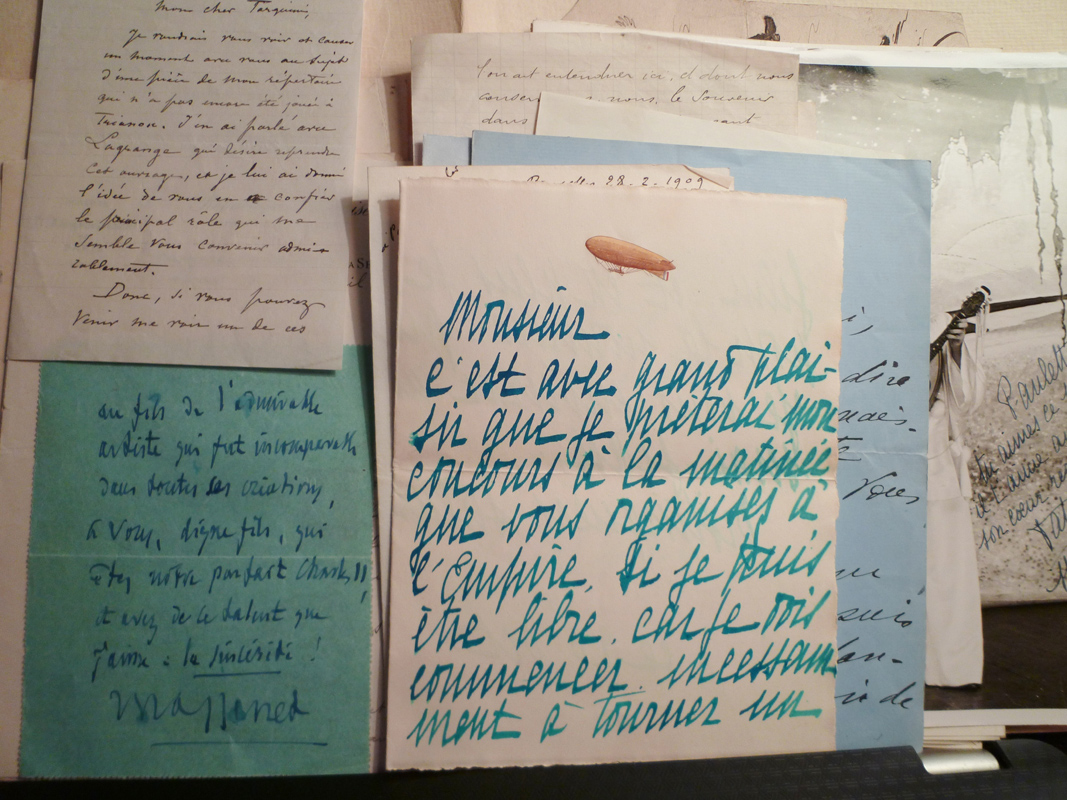 Mon cher Tarquini,
Je voudrais vous voir et causer
un moment avec vous au sujet
d'une pièce de mon répertoire
qui n'a pas encore été jouée à
Trianon. J'en ai parlé avec
Lagrange qui désire reprendre
cet ouvrage, et je lui ai donné
l'idée de vous en confier
le principal rôle qui me
semble vous convenir admi-
rablement.
Donc, si vous pouvez
venir me voir un de ces
au fils de l'admirable
artiste qui fut incomparable
dans toutes ses créations,
à vous, digne fils, qui
êtes notre parfait
et avez de ce talent que
j'aime : la sincérité !
Massenet
l'on ait entendues ici, et dont nous
nous, le souvenir
dans
Bruxelles 28-2-1909
Monsieur
c'est avec grand plai-
sir que je prêterai mon
concours à la matinée
que vous organisez à
l'Empire. Si je puis
être libre. car je dois
commencer. incessam
ment à tourner un
dire
Vous
suis
de
Paulett
tu aimes ce
son cœur